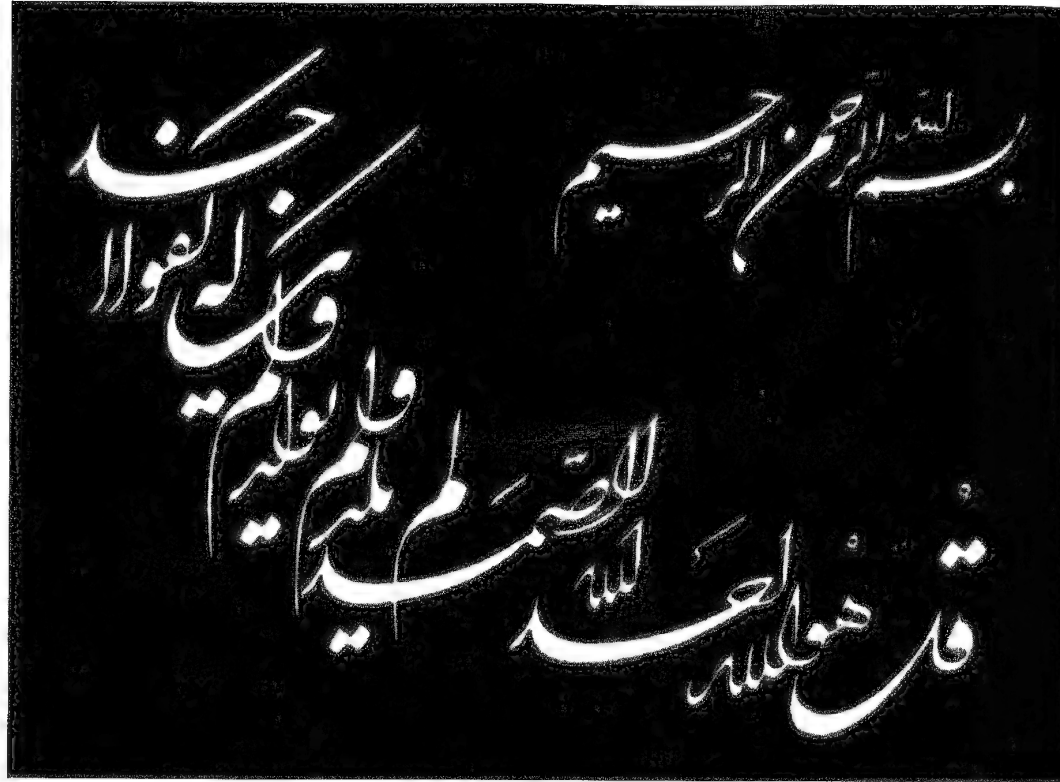 بسم الله الرحمن الرحيم
قل هو الله احد
الله الصمد
لم يلد
ولم يولد
ولم يكن له
كفوا احد